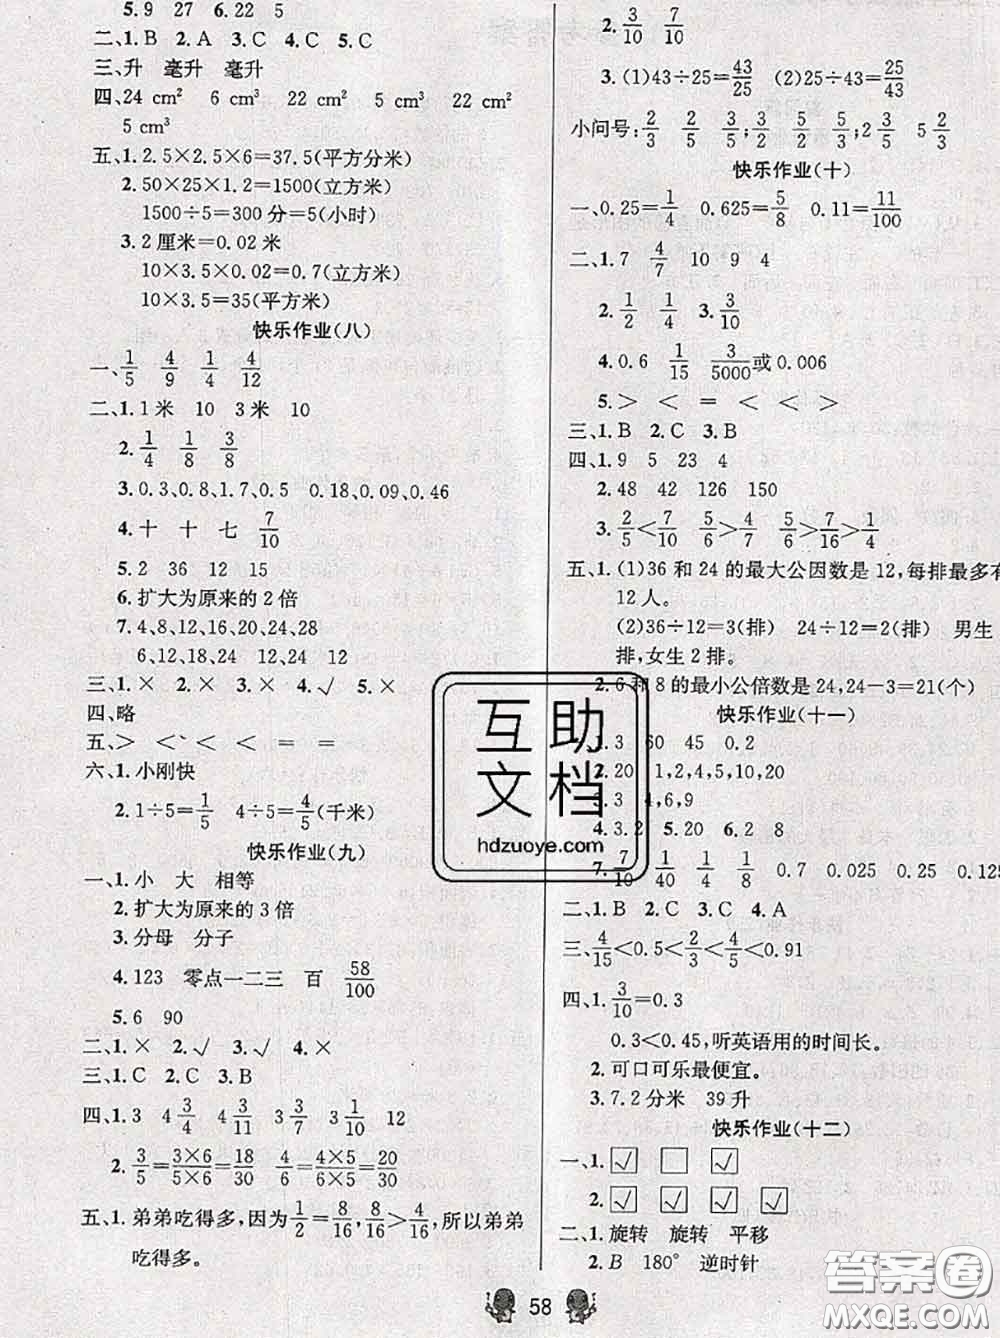 5. 9　27　6. 22　5
二、1. B　2. A　3. C　4. C　5. C
三、升　毫升　毫升
四、24 cm²　6 cm²　22 cm²　5 cm²　22 cm²
5 cm³
五、1. 2.5×2.5×6=37.5(平方分米)
2. 50×25×1.2=1500(立方米)
1500÷5=300 分=5(小时)
3. 2 厘米=0.02 米
10×3.5×0.02=0.7(立方米)
10×3.5=35(平方米)
快乐作业(八)
一、1/5　4/9　1/4　4/12
二、1. 1 米　10　3 米　10
2. 1/4　1/8　3/8
3. 0.3、0.8、1.7、0.5　0.18、0.09、0.46
4. 十　十　七　7/10
5. 2　36　12　15
6. 扩大为原来的 2 倍
7. 4、8、12、16、20、24、28
6、12、18、24　12、24　12
三、1. ×　2. ×　3. ×　4. √　5. ×
四、略
五、>　<　<　<　=　=
六、1. 小刚快
2. 1÷5=1/5　4÷5=4/5(千米)
快乐作业(九)
一、1. 小　大　相等
2. 扩大为原来的 3 倍
3. 分母　分子
4. 123　零点一二三　百　58/100
5. 6　90
二、1. ×　2. √　3. √　4. ×
三、1. C　2. C　3. B
四、1. 3　4 3/4　4 3/11　3 3/7　3 1/10　12
2. 3/5=3×6/5×6=18/30　4/6=4×5/6×5=20/30
五、1. 弟弟吃得多,因为1/2=8/16,8/16>4/16,所以弟弟
吃得多。
2. 3/10　7/10
3. (1)43÷25=43/25　(2)25÷43=25/43
小问号:2/3　2/5　3/5;3/2　5/2　5/3;2 3/5　5 2/3
快乐作业(十)
一、0.25=1/4　0.625=5/8　0.11=11/100
二、1. 7　4/7　10　9　4
2. 1/2　1/4　3. 3/10
4. 0.6　1/15　3/5000或 0.006
5. >　<　=　<　<　>
三、1. B　2. C　3. B
四、1. 9　5　23　4
2. 48　42　126　150
3. 2/5<7/10　5/6>4/6　5/6>7/16>1/4
五、1. (1)36 和 24 的最大公因数是 12,每排最多有
12 人。
(2)36÷12=3(排)　24÷12=2(排)　男生
排,女生 2 排。
2. 6 和 8 的最小公倍数是 24,24-3=21(个)
快乐作业(十一)
1. 3　60　45　0.2
2. 20　1,2,4,5,10,20
3. 3　4,6,9
4. 3.2　5. 20　6. 2　8
7. 7/10　1/40　1/4　1/8　0.7　0.025　0.25　0.125
二、1. B　2. C　3. C　4. A
三、4/15<0.5<2/3<4/5<0.91
四、1. 3/10=0.3
0.3<0.45,听英语用的时间长。
2. 可口可乐最便宜。
3. 7.2 分米　39 升
快乐作业(十二)
一、1. √　□　√
2. √　√　√　√
二、1. 旋转　旋转　平移
2. B　180°　逆时针
58
互助
文档
hdzuoye.com
答案圈
MXQE.COM